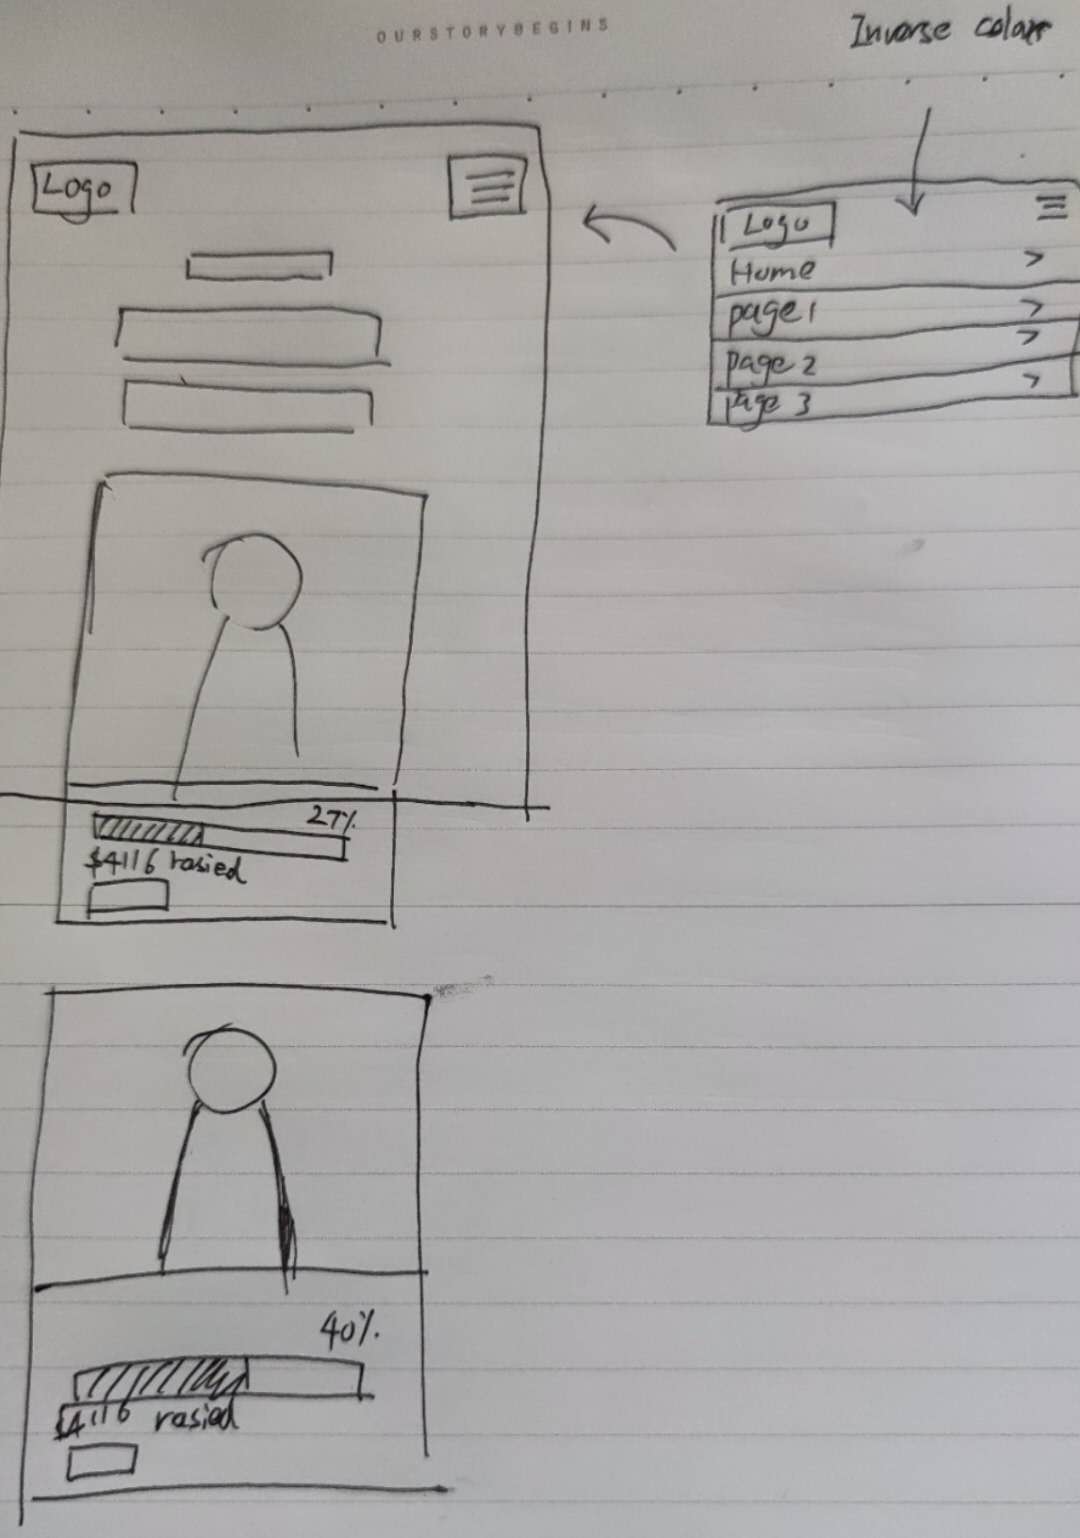 OURSTORYBEGINS
Inverse colors
Logo
Logo
Home >
page 1 >
page 2 >
page 3 >
27%
$4116 rasied
40%
$4116 rasied